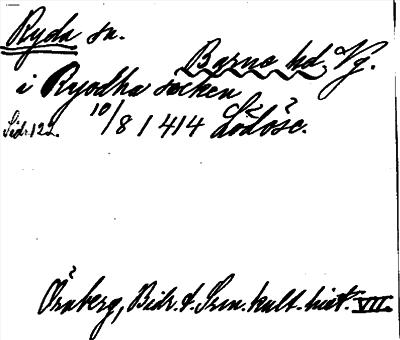 Ryda sn.
Barne hd, Vg.
i Ryodha sokken
Sid. 122. 10/8 1414 Lödöse.
Örnberg, Bidr. t. Svn. kult.-hist. VII.